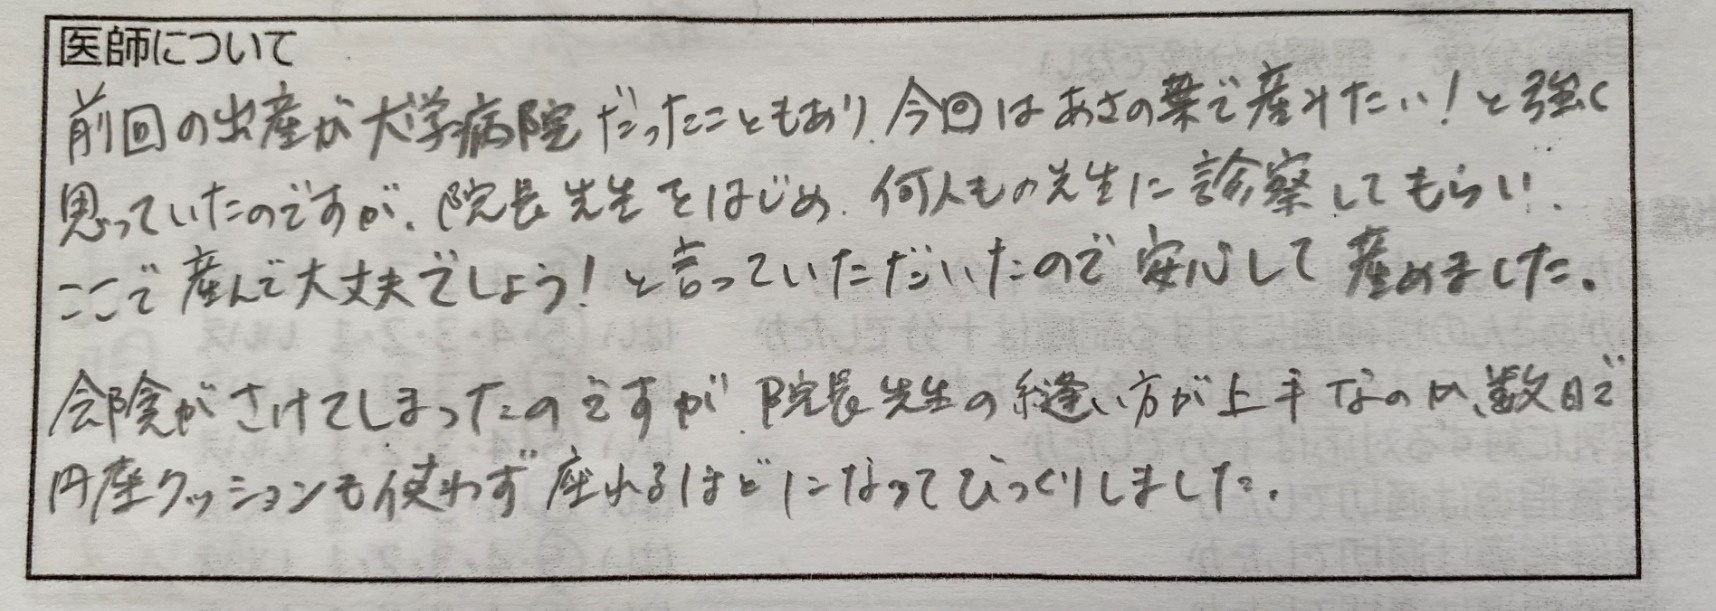 医師について
前回の出産が大学病院だったこともあり、今回はあさの葉で産みたい！と強く
思っていたのですが、院長先生をはじめ、何人もの先生に診察してもらい、
ここで産んで大丈夫でしょう！と言っていただいたので安心して産めました。
会陰がさけてしまったのですが、院長先生の縫い方が上手なのか、数日で
円座クッションも使わず座れるほどになってびっくりしました。